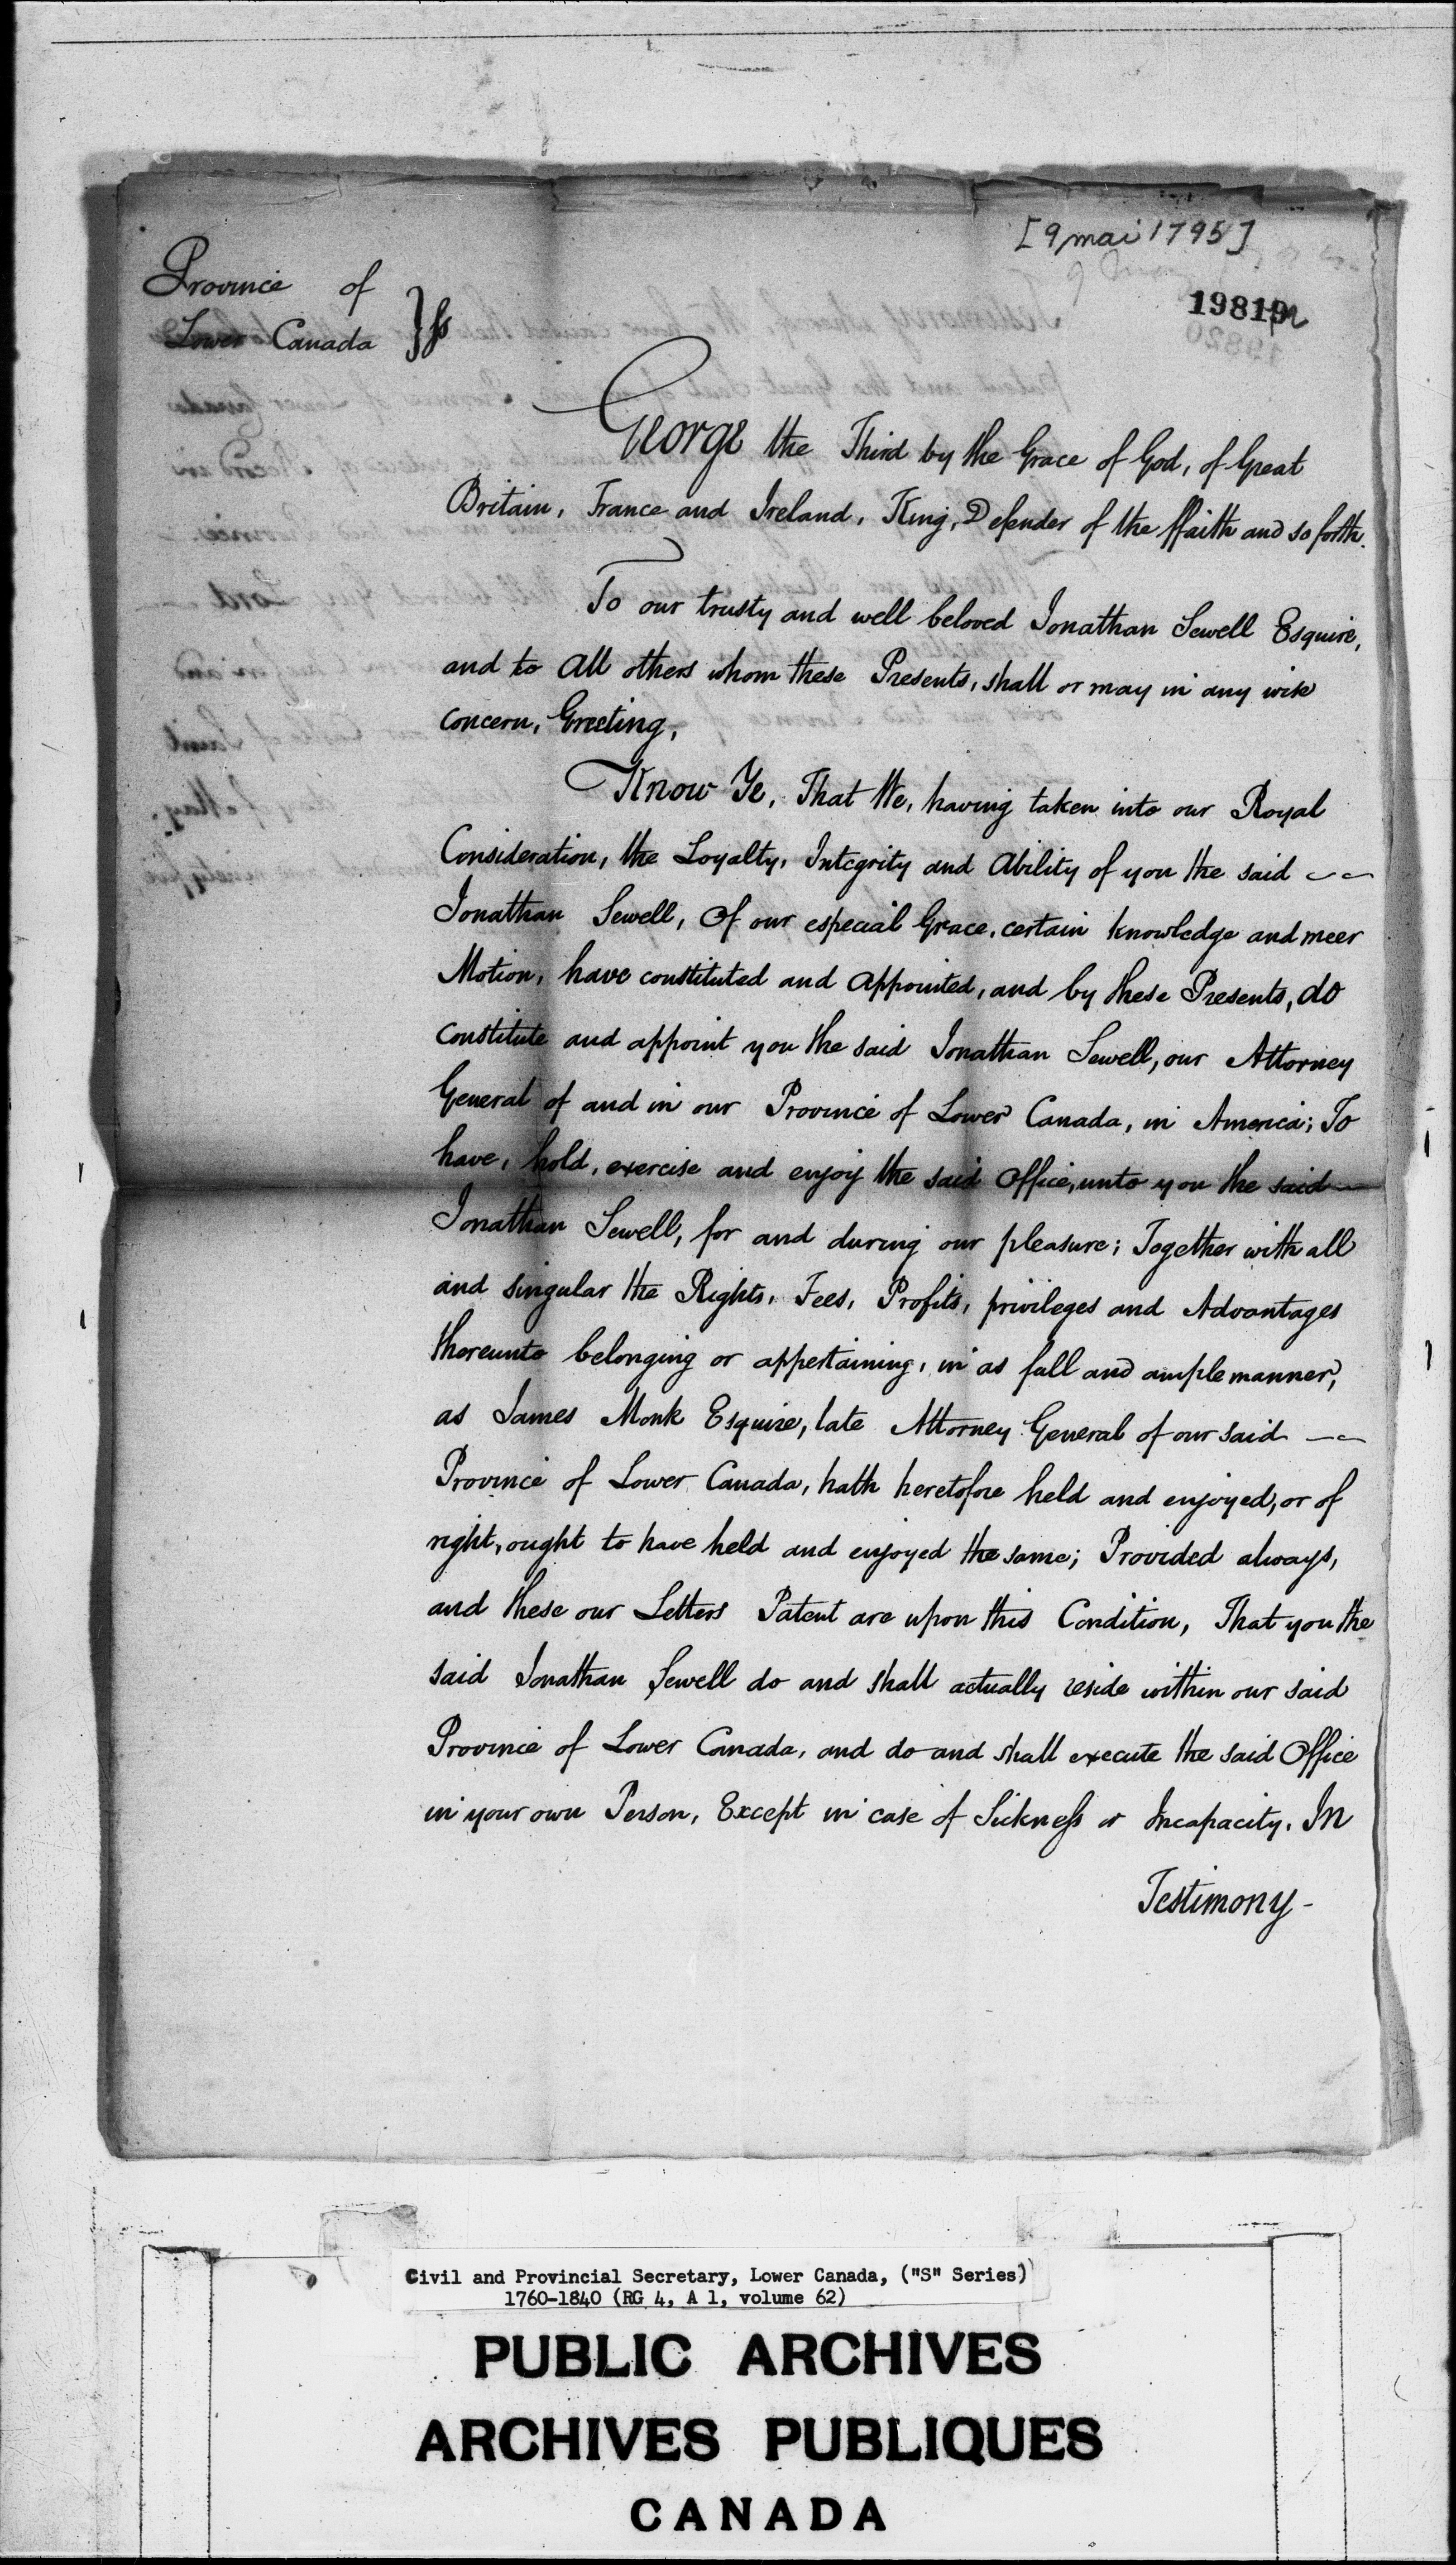 [9 mai 1795]
19819
Province of
Lower Canada } ſs
George the Third by the Grace of God, of Great
Britain, France and Ireland, King, Defender of the ffaith and so forth.
To our trusty and well beloved Jonathan Sewell Esquire,
and to all others whom these Presents, shall or may in any wise
concern, Greeting,
Know Ye, That We, having taken into our Royal
Consideration, the Loyalty, Integrity and Ability of you the said
Jonathan Sewell, Of our especial Grace, certain knowledge and meer
Motion, have constituted and appointed, and by these Presents, do
constitute and appoint you the said Jonathan Sewell, our Attorney
General of and in our Province of Lower Canada, in America; To
have, hold, exercise and enjoy the said Office, unto you the said
Jonathan Sewell, for and during our pleasure; Together with all
and singular the Rights, Fees, Profits, privileges and Advantages
thereunto belonging or appertaining, in as full and ample manner,
as James Monk Esquire, late Attorney General of our said
Province of Lower Canada, hath heretofore held and enjoyed, or of
right, ought to have held and enjoyed the same; Provided always,
and these our Letters Patent are upon this Condition, That you the
said Jonathan Sewell do and shall actually reside within our said
Province of Lower Canada, and do and shall execute the said Office
in your own Person, Except in case of Sickneſs or Incapacity. In
Testimony
Civil and Provincial Secretary, Lower Canada, ("S" Series)
1760-1840 (RG 4, A 1, volume 62)
PUBLIC ARCHIVES
ARCHIVES PUBLIQUES
CANADA